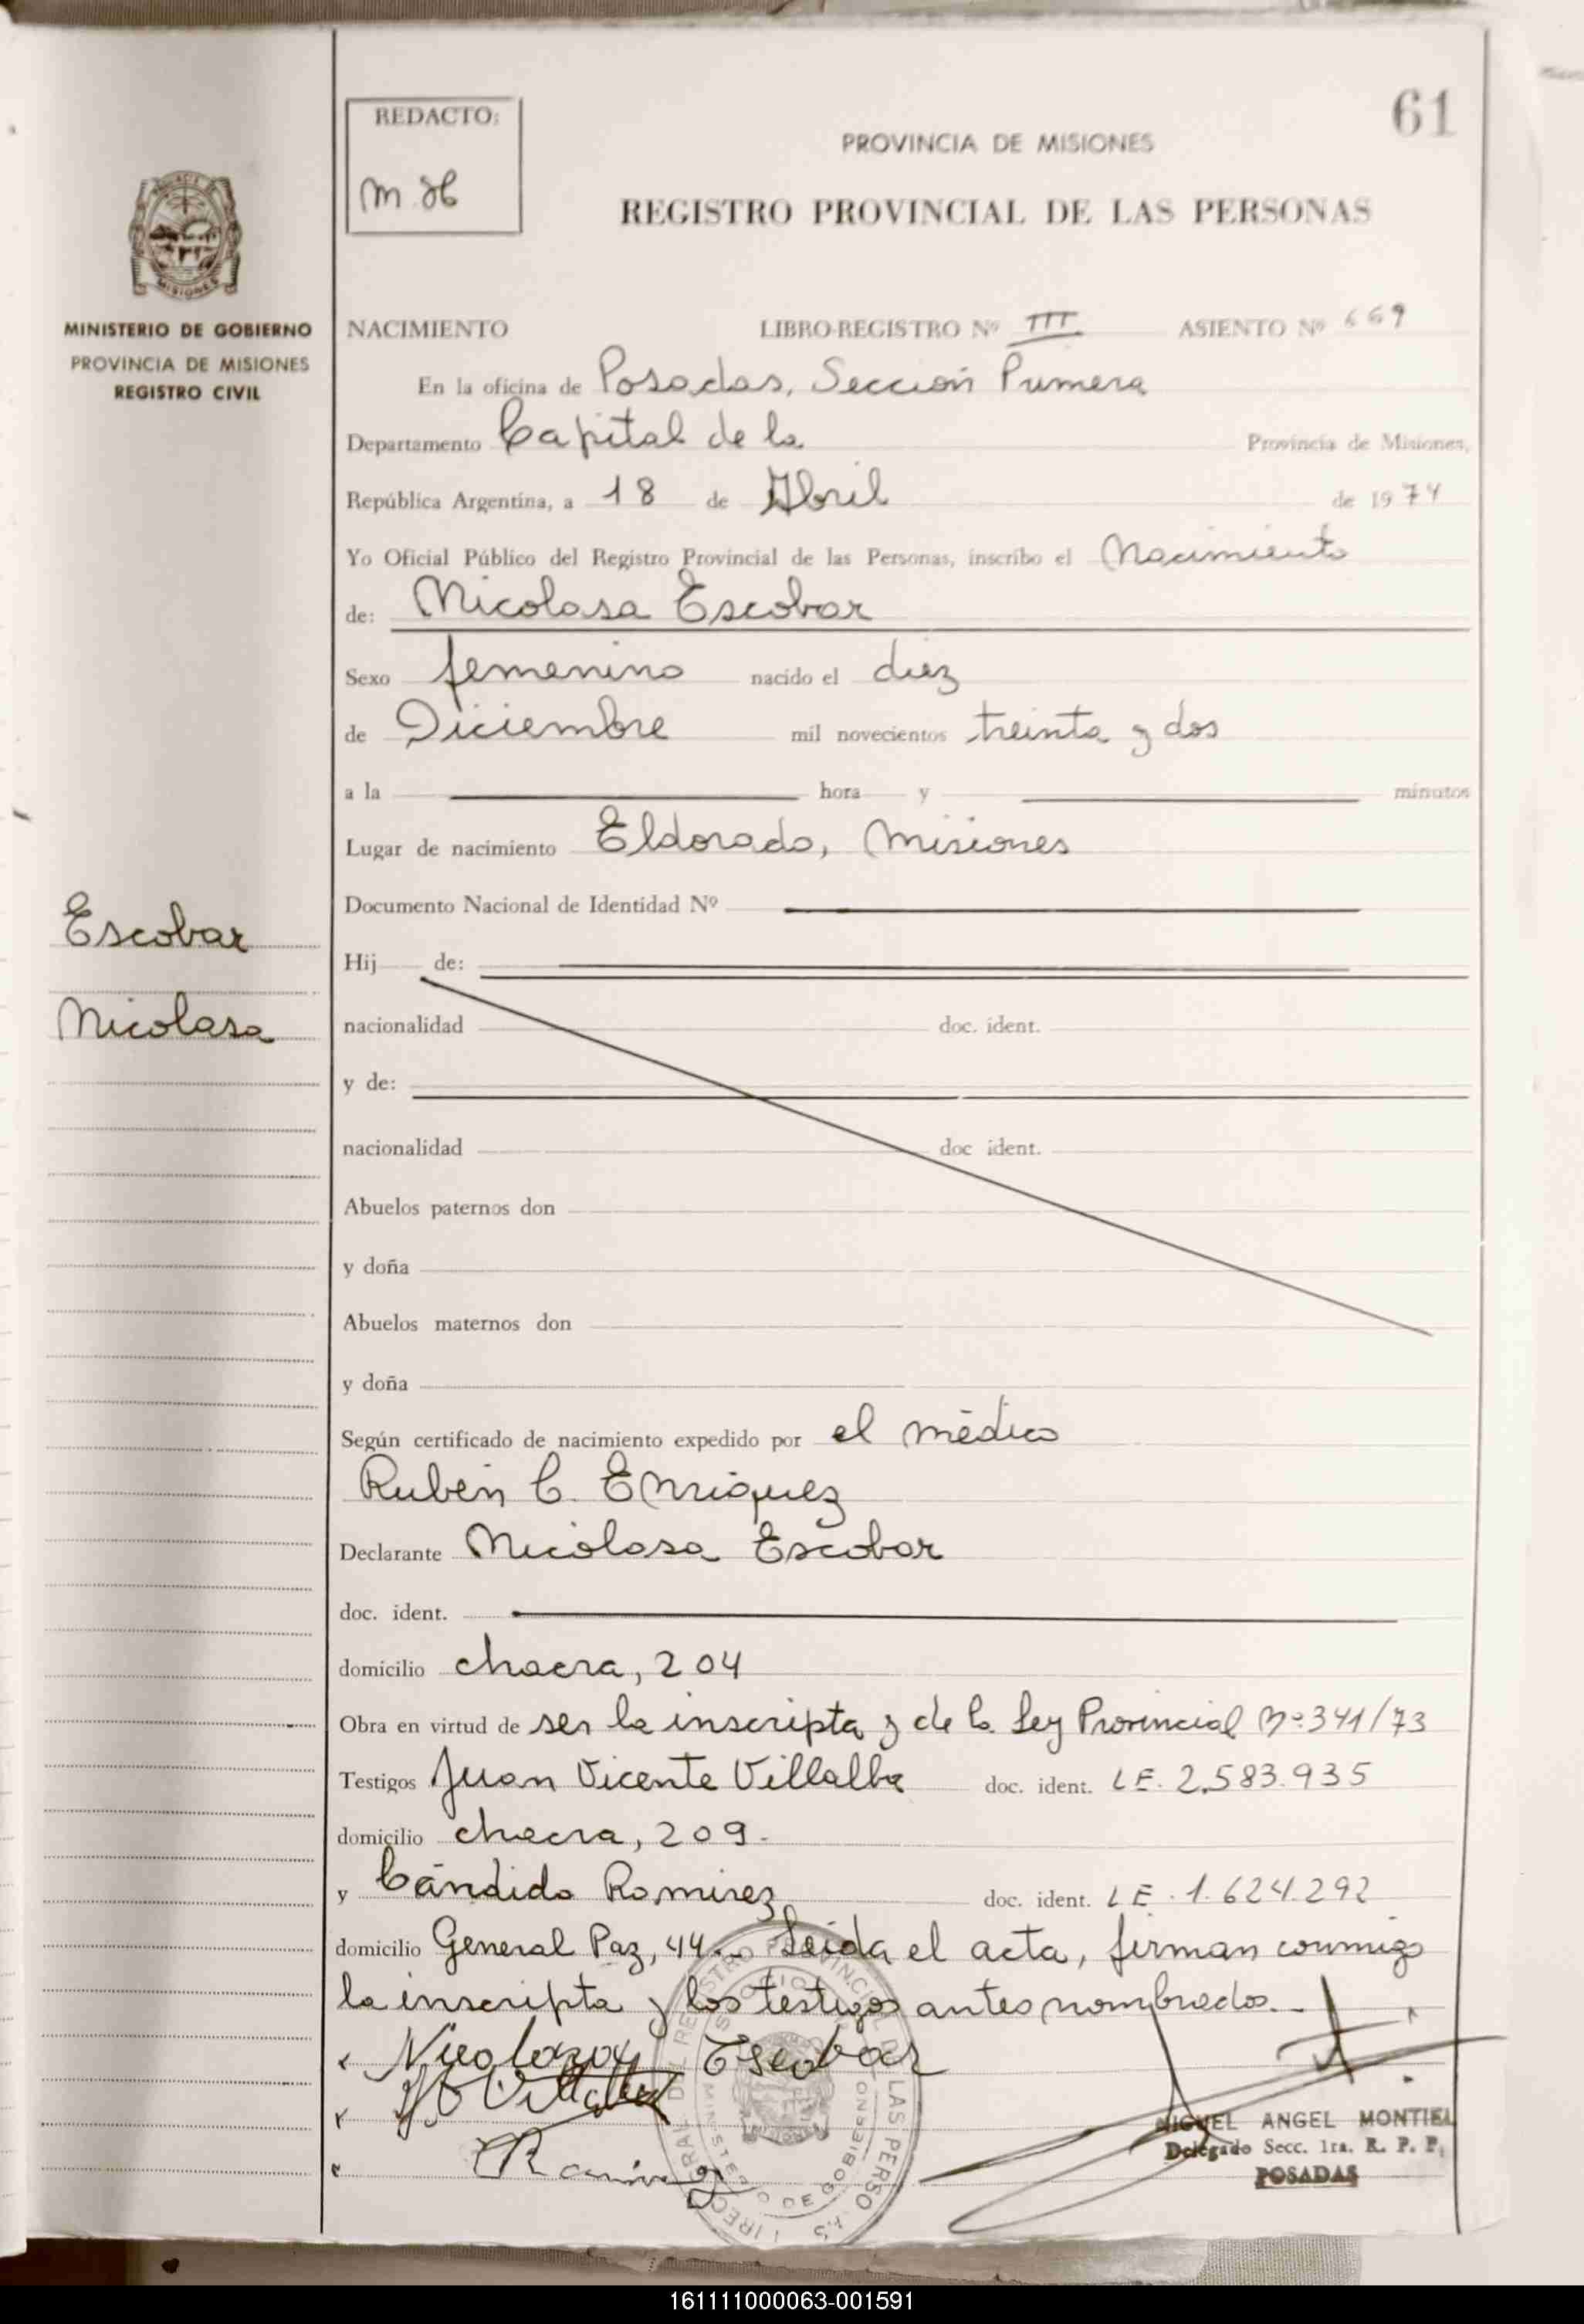 61
REDACTO:
PROVINCIA DE MISIONES
REGISTRO PROVINCIAL DE LAS PERSONAS
MISIONES
MINISTERIO DE GOBIERNO
PROVINCIA DE MISIONES
REGISTRO CIVIL
NACIMIENTO LIBRO-REGISTRO Nº III ASIENTO Nº 669
En la oficina de Posadas, Sección Primera
Departamento Capital de la Provincia de Misiones,
República Argentina, a 18 de Abril de 1974
Yo Oficial Público del Registro Provincial de las Personas, inscribo el Nacimiento
de: Nicolasa Escobar
Sexo femenino nacido el diez
de Diciembre mil novecientos treinta y dos
a la hora y minutos
Lugar de nacimiento Eldorado, Misiones
Documento Nacional de Identidad Nº
Escobar
Nicolasa
Hij de:
nacionalidad doc. ident.
y de:
nacionalidad doc ident.
Abuelos paternos don
y doña
Abuelos maternos don
y doña
Según certificado de nacimiento expedido por el médico
Rubén C. Enriquez
Declarante Nicolasa Escobar
doc. ident.
domicilio chacra, 204
Obra en virtud de ser la inscripta y de la Ley Provincial Nº 341/73
Testigos Juan Vicente Villalba doc. ident. LE. 2.583.935
domicilio chacra, 209.
y Cándido Ramirez doc. ident. LE. 1.624.292
domicilio General Paz, 44.- Leida el acta, firman conmigo
la inscripta y los testigos antes nombrados.-
Nicolasa Escobar
Villalba
Ramirez
MIGUEL ANGEL MONTIEL
Delegado Secc. 1ra. R. P. P.
POSADAS
161111000063-001591